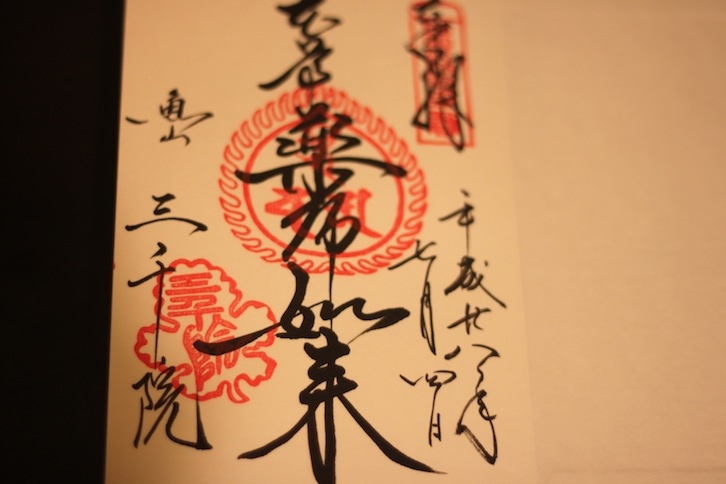 奉拝
平成廿八年
七月四日
本尊
薬師如来
魚山
三千院
三千院